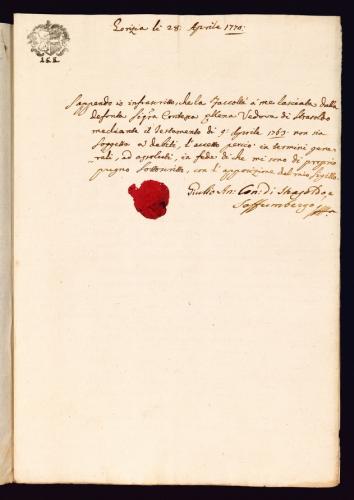 Gorizia li 28. Aprile 1770.
Sappendo io infrascritto, che la Facoltà a me lasciata dalla
defonta Sigra Contessa Elena Vedova di Strasoldo
mediante il Testamento di 9. Aprile 1763. non sia
soggetta a debiti, l'accetto perciò in termini gene-
rali, ed assoluti, in fede di che mi sono di proprio
pugno sottoscritto, con l'apposizione del mio Sigillo.
Giulio An: Con: di Strasoldo, e
Soffumbergo